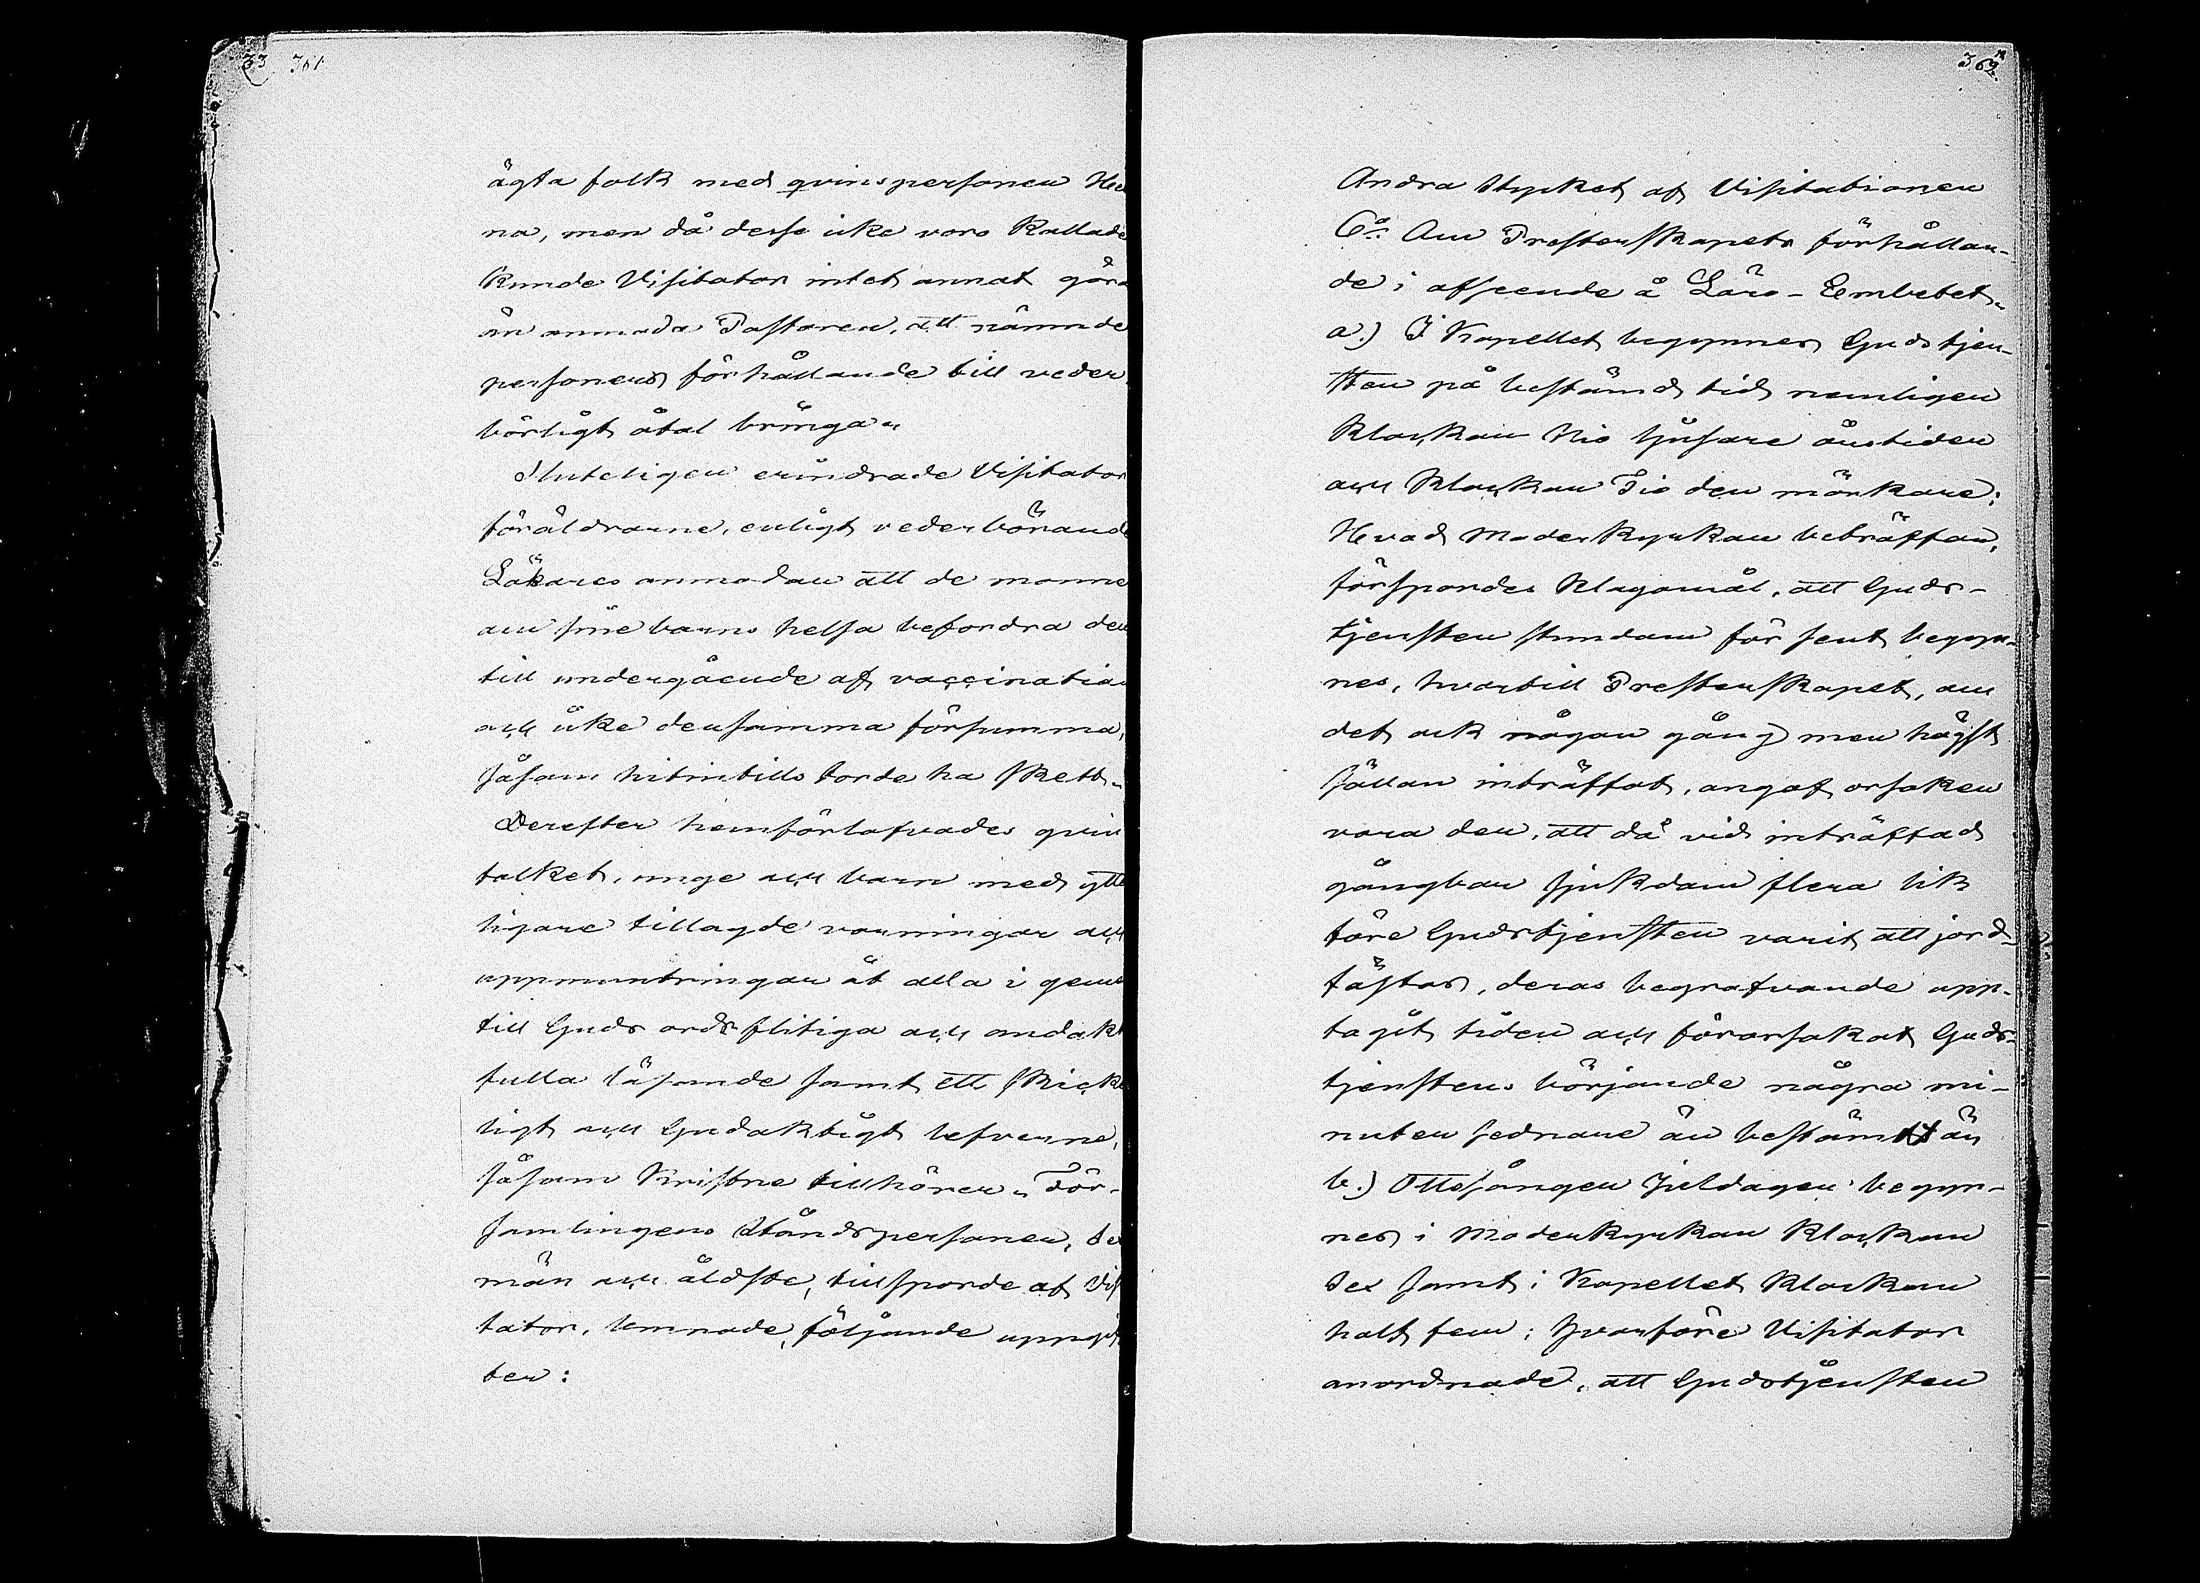 33 361
ägta folk med qvinspersonen He
na, men då desse icke voro Kallade
Kunde Visitator intet annat göra
än anmoda Pastoren, att nämnde
personers förhållande till veder
börligt åtal bringa.
Sluteligen erindrade Visitator
föräldrarne, enligt vederbörande
Läkares anmodan att de månne
om sine barns helsa befordra dem
till undergående af vaccination
och icke densamma försumma,
såsom hitintills torde ha skett.
Derefter hemförlofvades qvin
folket, unge och barn med ytte
ligare tillagde varningar och
uppmuntringar åt alla i gemen
till Guds ords flitiga och andakt
fulla läsande samt ett skicke
ligt och Gudaktigt lefverne,
såsom Kristne tillhörer. För-
samlingens Ståndspersoner, Se
män och äldste, tillsporde af Visi
tator, lemnade följande uppgif
ter:
362
Andra Stycket af Visitationen
6:o Om Presterskapets förhållan-
de i afseende å Läro-Eembetet.
a.) I Kapellet begynnes Gudstjen-
sten på bestämd tid nemligen
Klockan Nio ljusare årstiden
och Klockan Tio den mörkare;
Hvad Moderkyrkan beträffar,
förspordes Klagomål, att Guds-
tjensten stundom för sent begyn-
nes, hvartill Presterskapet, om
det ock någon gång men högst
sällan inträffat, angaf orsaken
vara den, att då vid inträffad
gångbar sjukdom flera lik
före Gudstjensten varit att jord-
fästas, deras begrafvande upp-
tagit tiden och förorsakat Guds-
tjenstens börjande några mi-
nuter sednare än bestämdt är
b.) Ottesången Juldagen begyn-
nes i Moderkyrkan Klockan
Sex samt i Kapellet Klockan
half fem; hvarföre Visitator
anordnade, att Gudstjensten